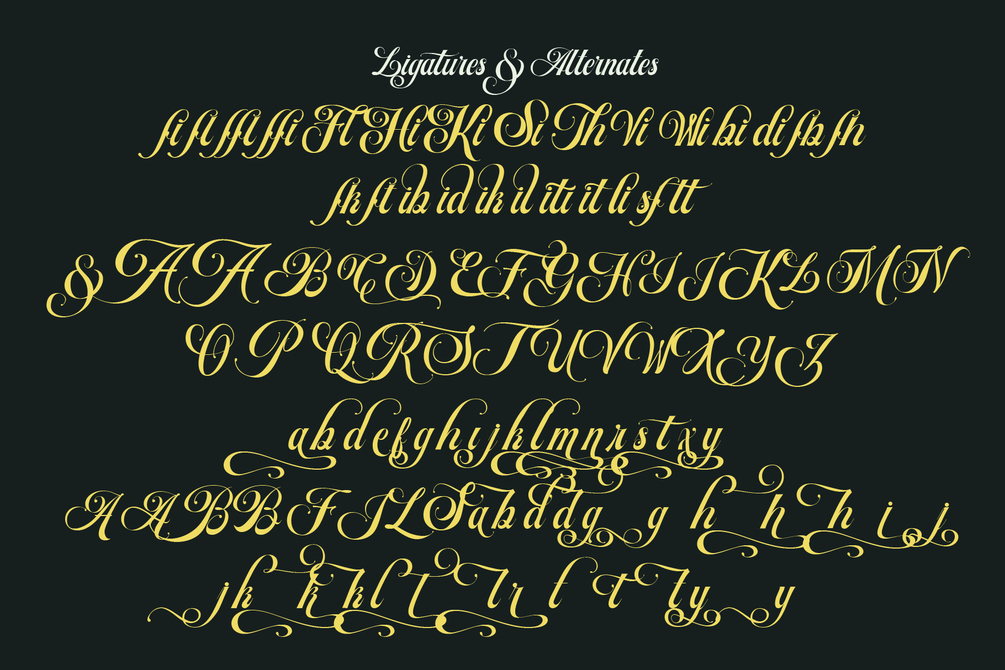 Ligatures & Alternates
fi fl ffl ffi Fl Hi Ki Si Th Vi Wi bi di fb fh
fk ft ib id ik il iti it li sf tt
& A A B C D E F G H I J K L M N
O P Q R S T U V W X Y Z
a b d e f g h i j k l m n r s t x y
A A B B F J L S a b d d g g h h h i j
j k k k l t l r t t t y y